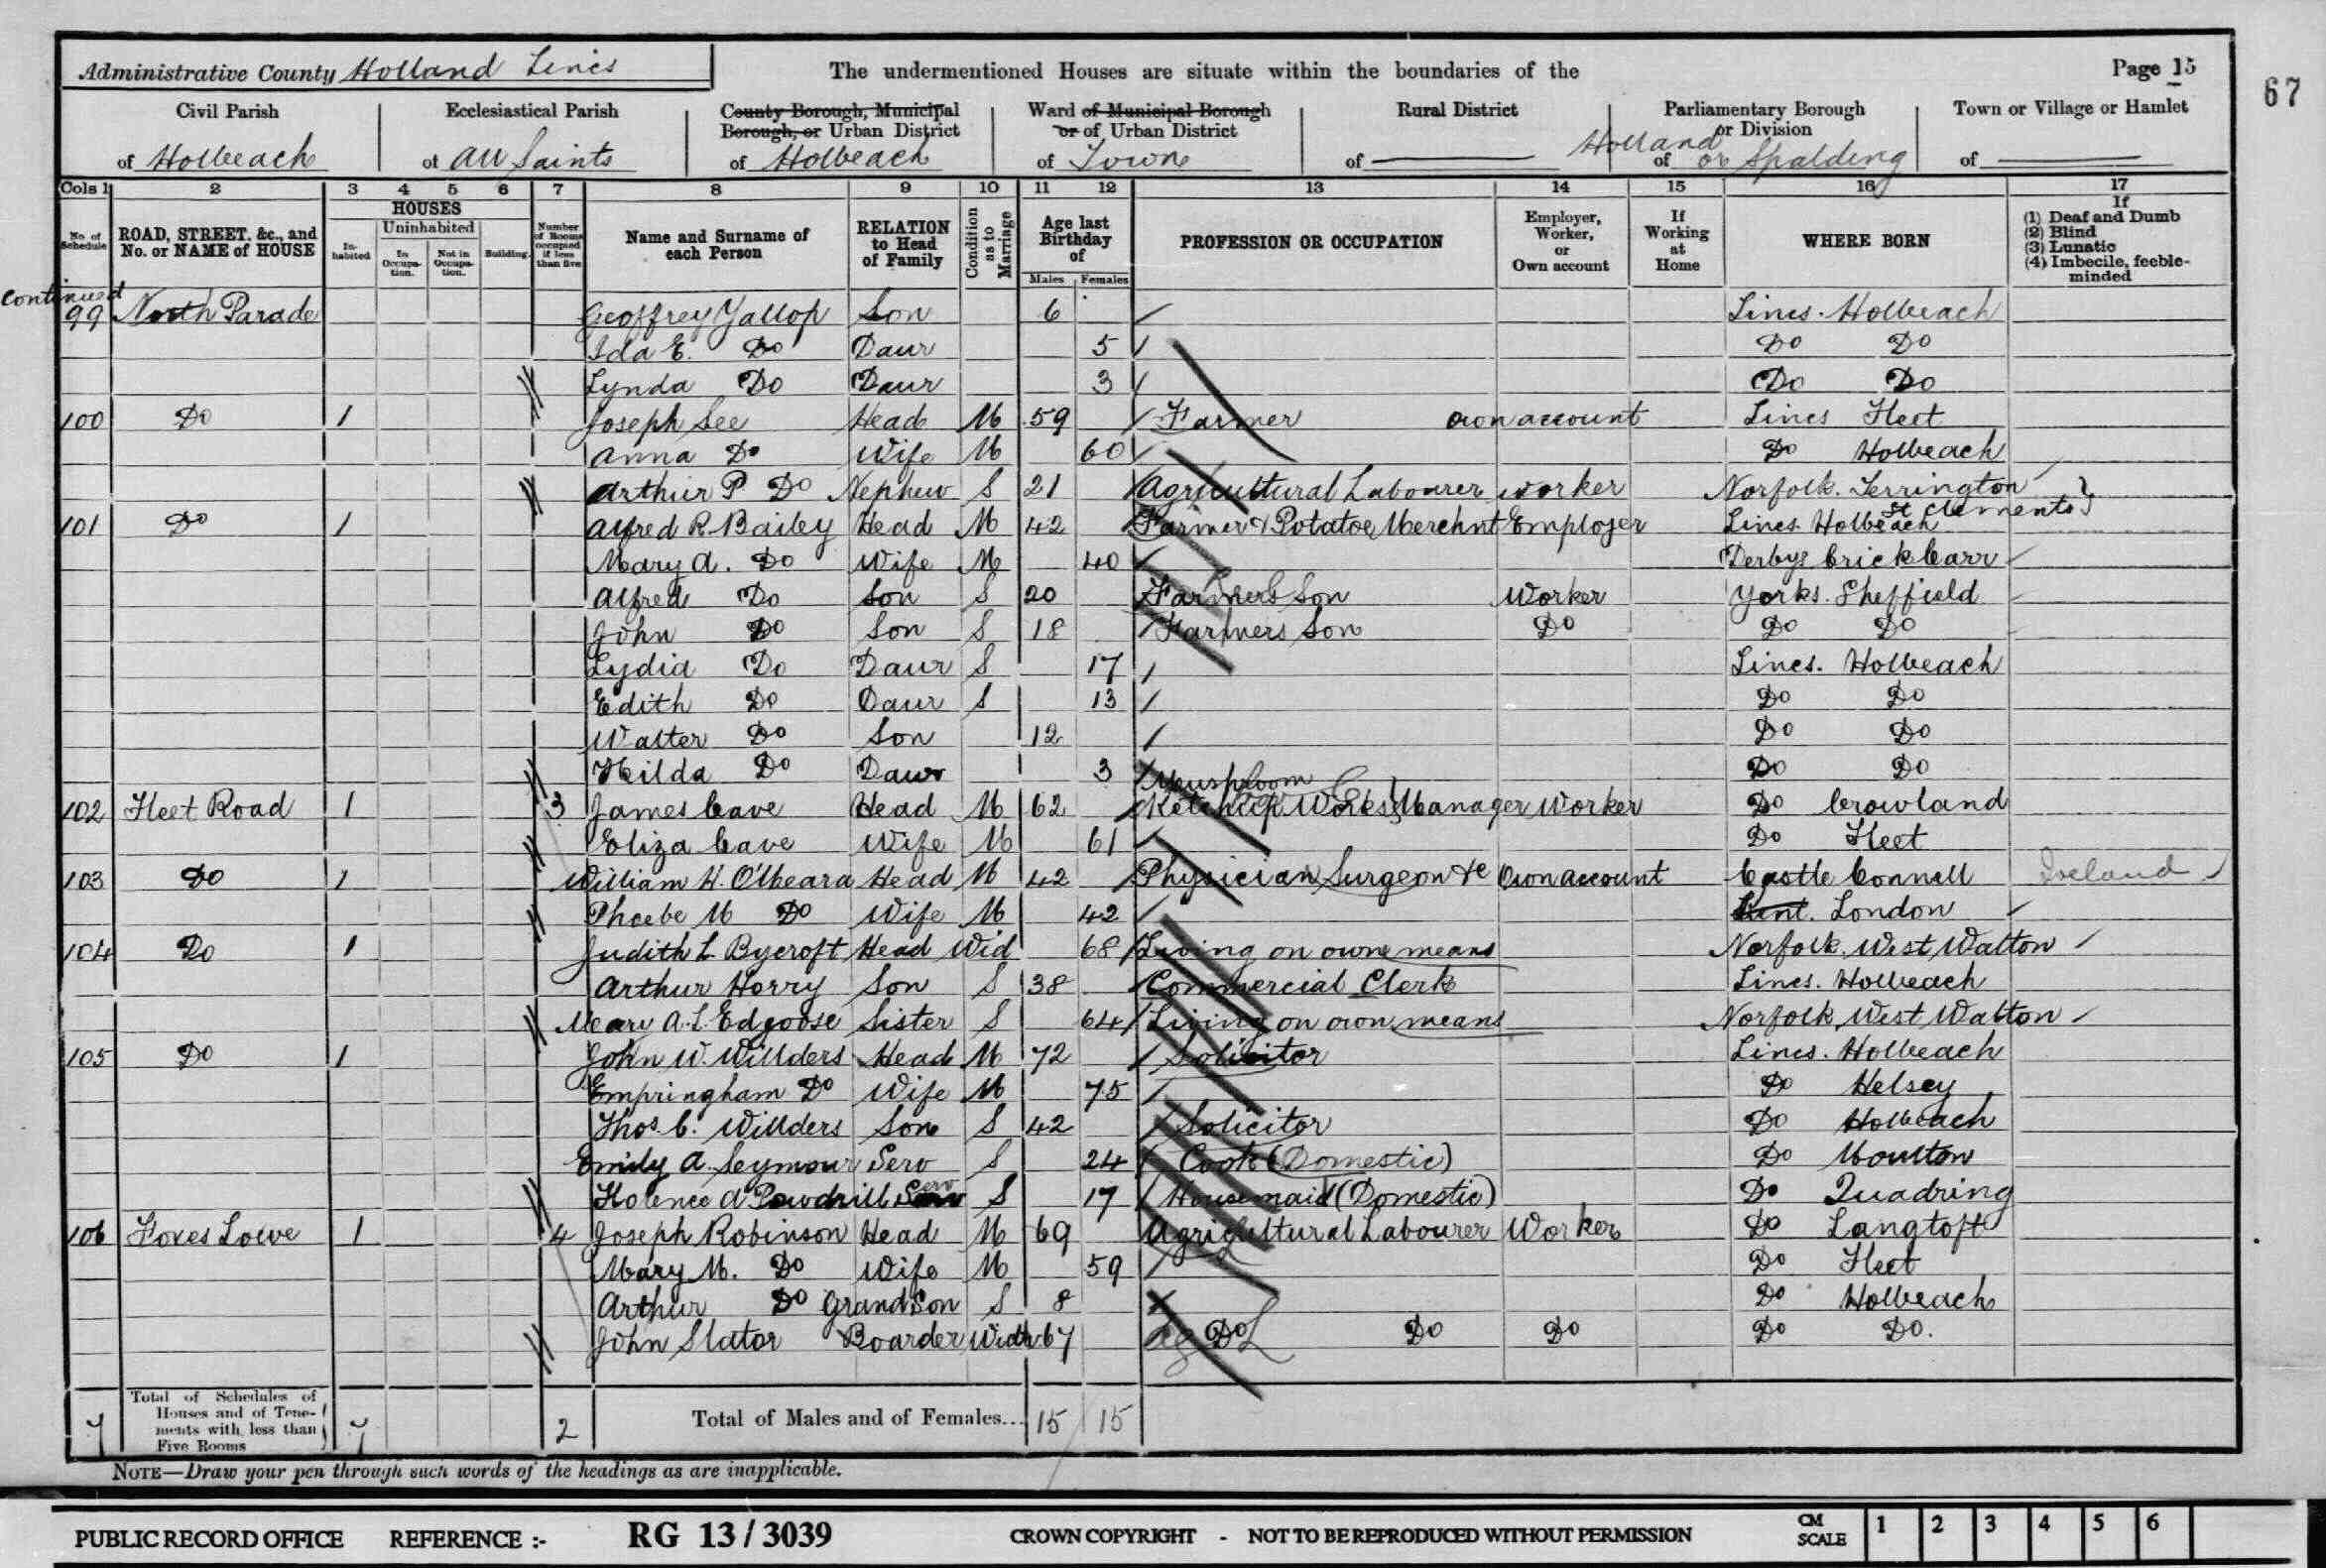 Administrative County Holland Lincs
The undermentioned Houses are situate within the boundaries of the
Page 15
67
Civil Parish of Holbeach
Ecclesiastical Parish of All Saints
County Borough, Municipal Borough, or Urban District of Holbeach
Ward of Municipal Borough or of Urban District of Town
Rural District of
Parliamentary Borough or Division of Holland or Spalding
Town or Village or Hamlet of
Cols 1 2 3 4 5 6 7 8 9 10 11 12 13 14 15 16 17
No. of Schedule
ROAD, STREET, &c., and No. or NAME of HOUSE
HOUSES
Inhabited
Uninhabited
In Occupation.
Not in Occupation.
Building.
Number of Rooms occupied if less than five
Name and Surname of each Person
RELATION to Head of Family
Condition as to Marriage
Age last Birthday of
Males Females
PROFESSION OR OCCUPATION
Employer, Worker, or Own account
If Working at Home
WHERE BORN
If
(1) Deaf and Dumb
(2) Blind
(3) Lunatic
(4) Imbecile, feeble-minded
continued
99 North Parade Geoffrey Yallop Son 6 Lincs. Holbeach
Ida E. Do Daur 5 Do Do
Lynda Do Daur 3 Do Do
100 Do 1 Joseph See Head M 59 Farmer own account Lincs Fleet
Anna Do Wife M 60 Do Holbeach
Arthur P Do Nephew S 21 Agricultural Labourer worker Norfolk. Terrington St Clements
101 Do 1 Alfred R Bailey Head M 42 Farmer & Potatoe Merchnt Employer Lincs Holbeach
Mary A. Do Wife M 40 Derbys Crick Carr
Alfred Do Son S 20 Farmers Son Worker Yorks. Sheffield
John Do Son S 18 Farmers Son Do Do Do
Lydia Do Daur S 17 Lincs. Holbeach
Edith Do Daur S 13 Do Do
Walter Do Son 12 Do Do
Hilda Do Daur 3 Do Do
102 Fleet Road 1 3 James Cave Head M 62 Mushroom Ketchup Works Manager Worker Do Crowland
Eliza Cave Wife M 61 Do Fleet
103 Do 1 William H. O'Meara Head M 42 Physician Surgeon &c Own account Castle Connell Ireland
Phoebe M Do Wife M 42 Kent. London
104 Do 1 Judith L Bycroft Head Wid 68 Living on own means Norfolk. West Walton
Arthur Horry Son S 38 Commercial Clerk Lincs. Holbeach
Mary A. L. Edgoose Sister S 64 Living on own means Norfolk. West Walton
105 Do 1 John W. Willders Head M 72 Solicitor Lincs. Holbeach
Empringham Do Wife M 75 Do Helsey
Thos. C. Willders Son S 42 Solicitor Do Holbeach
Emily A. Seymour Serv S 24 Cook (Domestic) Do Moulton
Florence A Powdrill Serv S 17 Housemaid (Domestic) Do Quadring
106 Foxes Lowe 1 4 Joseph Robinson Head M 69 Agricultural Labourer Worker Do Langtoft
Mary M. Do Wife M 59 Do Fleet
Arthur Do GrandSon S 8 Do Holbeach
John Slator Boarder Widr 67 Ag Do L Do Do Do Do.
7 Total of Schedules of Houses and of Tenements with less than Five Rooms 7 2 Total of Males and of Females... 15 15
NOTE—Draw your pen through such words of the headings as are inapplicable.
PUBLIC RECORD OFFICE REFERENCE :- RG 13 / 3039 CROWN COPYRIGHT - NOT TO BE REPRODUCED WITHOUT PERMISSION CM SCALE 1 2 3 4 5 6